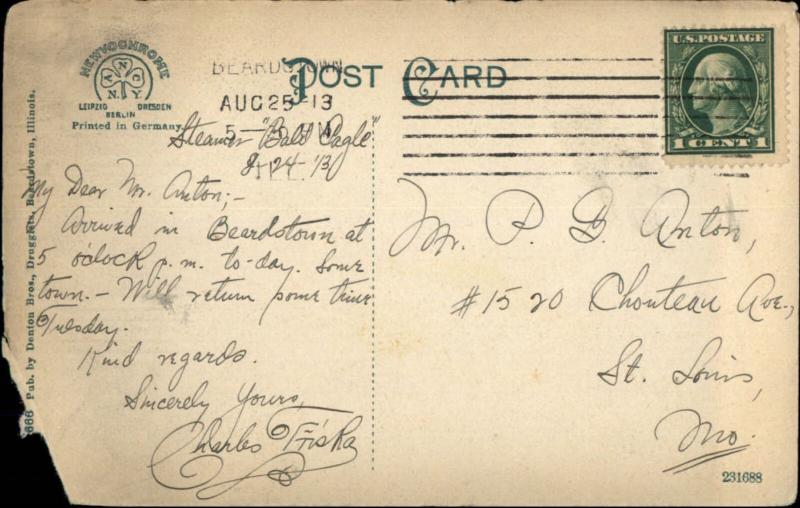 NEWVOCHROME
ANC
N.Y.
LEIPZIG DRESDEN
BERLIN
Printed in Germany
POST CARD
BEARDSTOWN
AUG 25 13
5-
ILL.
U.S. POSTAGE
1 CENT 1
Steamer "Bald Eagle"
8/24 '13
My Dear Mr. Anton;-
Arrived in Beardstown at
5 o'clock p.m. to-day. Some
town.- Will return some time
Tuesday.
Kind regards.
Sincerely Yours,
Charles Friska
Mr. P. D. Anton,
#1520 Chouteau Ave.,
St. Louis,
Mo.
231688
666 Pub. by Denton Bros., Druggists, Beardstown, Illinois.